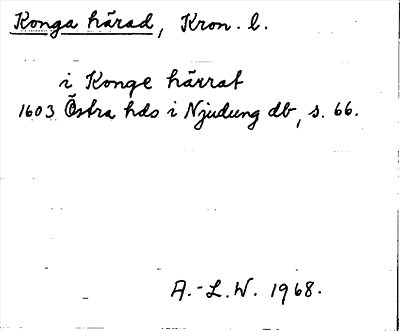 Konga härad, Kron. l.
i Konge härrat
1603 Östra hds i Njudung db, s. 66.
A.-L.W. 1968.